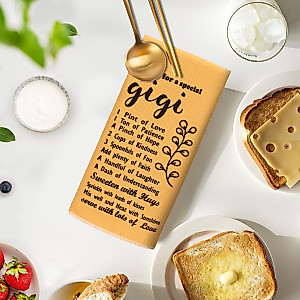 for a special
gigi
1 Pint of Love
A Ton of Patience
A Pinch of Hope
2 Cups of Kindness
3 Spoonfuls of Fun
Add plenty of Faith
A Handful of Laughter
A Dash of Understanding
Sweeten with Hugs
Sprinkle with loads of kisses
Mix well and Heat with Sunshine
serve with lots of Love